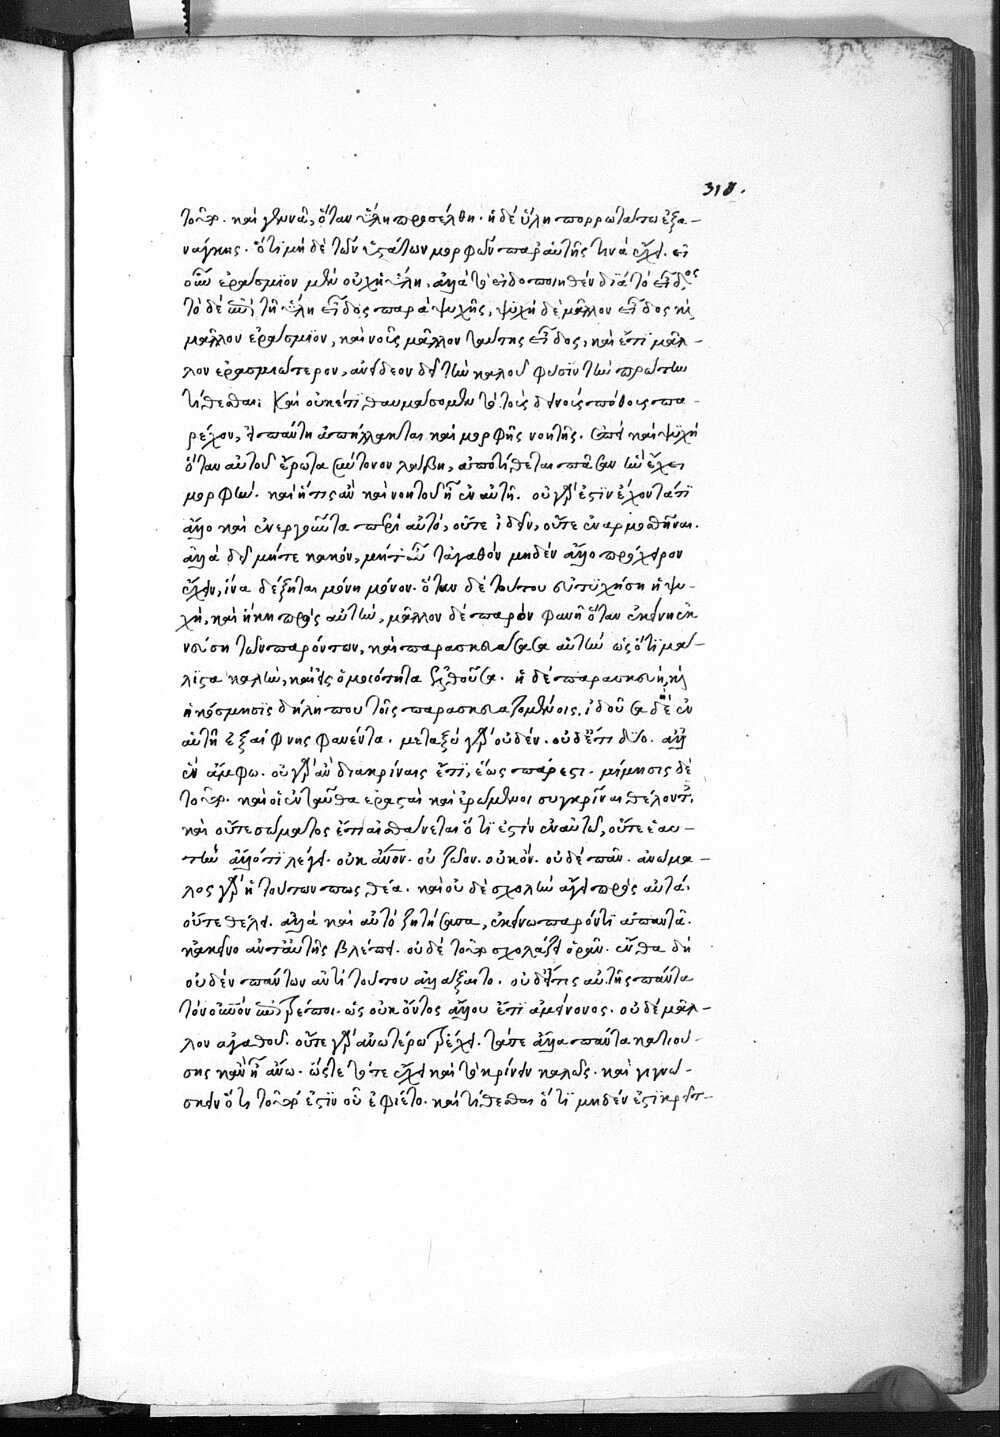 318.
τοῦτο. καὶ γεννᾶ, ὅταν ὕλη προσέλθη. ἡ δὲ ὕλη πορρωτάτω ἐξα-
νάγκης. ὅτι μὴ δὲ τῶν ὑστάτων μορφῶν παρ' αὐτῆς τινὰ ἔχει. εἰ
οὖν ἐράσμιον μὲν οὐχ ἡ ὕλη, ἀλλὰ τὸ εἰδοποιηθὲν διὰ τὸ εἶδος
τὸ δὲ ἐπὶ τῆ ὕλη εἶδος παρὰ ψυχῆς, ψυχὴ δὲ μᾶλλον εἶδος καὶ
μᾶλλον ἐράσμιον, καὶ νοῦς μᾶλλον ταύτης εἶδος, καὶ ἔτι μᾶλ-
λον ἐρασμιώτερον, δεῖ τὴν καλοῦ φύσιν τὴν πρώτην
τίθεσθαι; Καὶ οὐκ ἔτι θαυμάσομεν τὸ τοὺς δεινοὺς πόθους πα-
ρέχον, εἰ πάντη ἀπήλλακται καὶ μορφῆς νοητῆς. ἐπεὶ καὶ ψυχὴ
ὅταν αὐτοῦ ἔρωτα σύντονον λάβη, ἀποτίθεται πᾶσαν ἣν ἔχει
μορφήν. καὶ ἥτις ἂν καὶ νοητοῦ ἦ ἐν αὐτῆ. οὐ γάρ ἐστιν ἔχοντά τι
ἄλλο καὶ ἐνεργοῦντα περὶ αὐτό, οὔτε ἰδεῖν, οὔτε ἐναρμοσθῆναι.
ἀλλὰ δεῖ μήτε κακόν, μήτ' οὖν τἀγαθὸν μηδὲν ἄλλο πρόχειρον
ἔχειν, ἵνα δέξηται μόνη μόνον. ὅταν δὲ τούτου εὐτυχήση ἡ ψυ-
χή, καὶ ἥκη πρὸς αὐτήν, μᾶλλον δὲ παρὸν φανῆ ὅταν ἐκείνη ἐκ
νεύση τῶν παρόντων, καὶ παρασκευάσασα αὑτὴν ὡς ὅτι μά-
λιστα καλήν, καὶ εἰς ὁμοιότητα ἐλθοῦσα. ἡ δὲ παρασκευὴ, καὶ
ἡ κόσμησις δήλη που τοῖς παρασκευαζομένοις. ἰδοῦσα δὲ ἐν
αὑτῆ ἐξαίφνης φανέντα. μεταξὺ γὰρ οὐδέν. οὐδ' ἔτι δύο. ἀλλ'
ἓν ἄμφω. οὐ γὰρ ἂν διακρίναις ἔτι, ἕως πάρεστι. μίμησις δὲ
τούτου. καὶ οἱ ἐνταῦθα ἐρασταὶ καὶ ἐρώμενοι συγκρῖναι θέλοντες.
καὶ οὔτε σώματος ἔτι αἰσθάνεται ὅτι ἐστὶν ἐν αὐτῶ, οὔτε ἑαυ-
τὴν ἄλλό τι λέγει. οὐκ ἄνθρωπον. οὐ ζῶον. οὐκ ὄν. οὐδὲ πᾶν. ἀνώμα-
λος γὰρ ἡ τούτων πως θέα. καὶ οὐδὲ σχολὴν ἄγει πρὸς αὐτά.
οὔτε θέλει. ἀλλὰ καὶ αὐτὸ ζητήσασα, ἐκείνω παρόντι ἀπαντᾶ.
κἀκεῖνο ἀντ' αὐτῆς βλέπει. οὐδὲ σχολάζει ὁρᾶν. ἔνθα δὴ
οὐδὲν πάντων ἀντὶ τούτου ἀλλάξαιτο. οὐδ' εἴ τις αὐτῆ πάντα
τὸν οὐρανὸν ἐπιτρέποι. ὡς οὐκ ὄντος ἄλλου ἔτι ἀμείνονος. οὐδὲ μᾶλ-
λον ἀγαθοῦ. οὔτε γὰρ ἀνωτέρω τρέχει. τά τε ἄλλα πάντα κατιού-
σης κἂν ἦ ἄνω. ὥστε τότε ἔχει καὶ τὸ κρίνειν καλῶς. καὶ γιγνώ-
σκειν ὅτι τοῦτό ἐστιν οὗ ἐφίετο. καὶ τίθεσθαι ὅτι μηδέν ἐστι κρεῖτ-